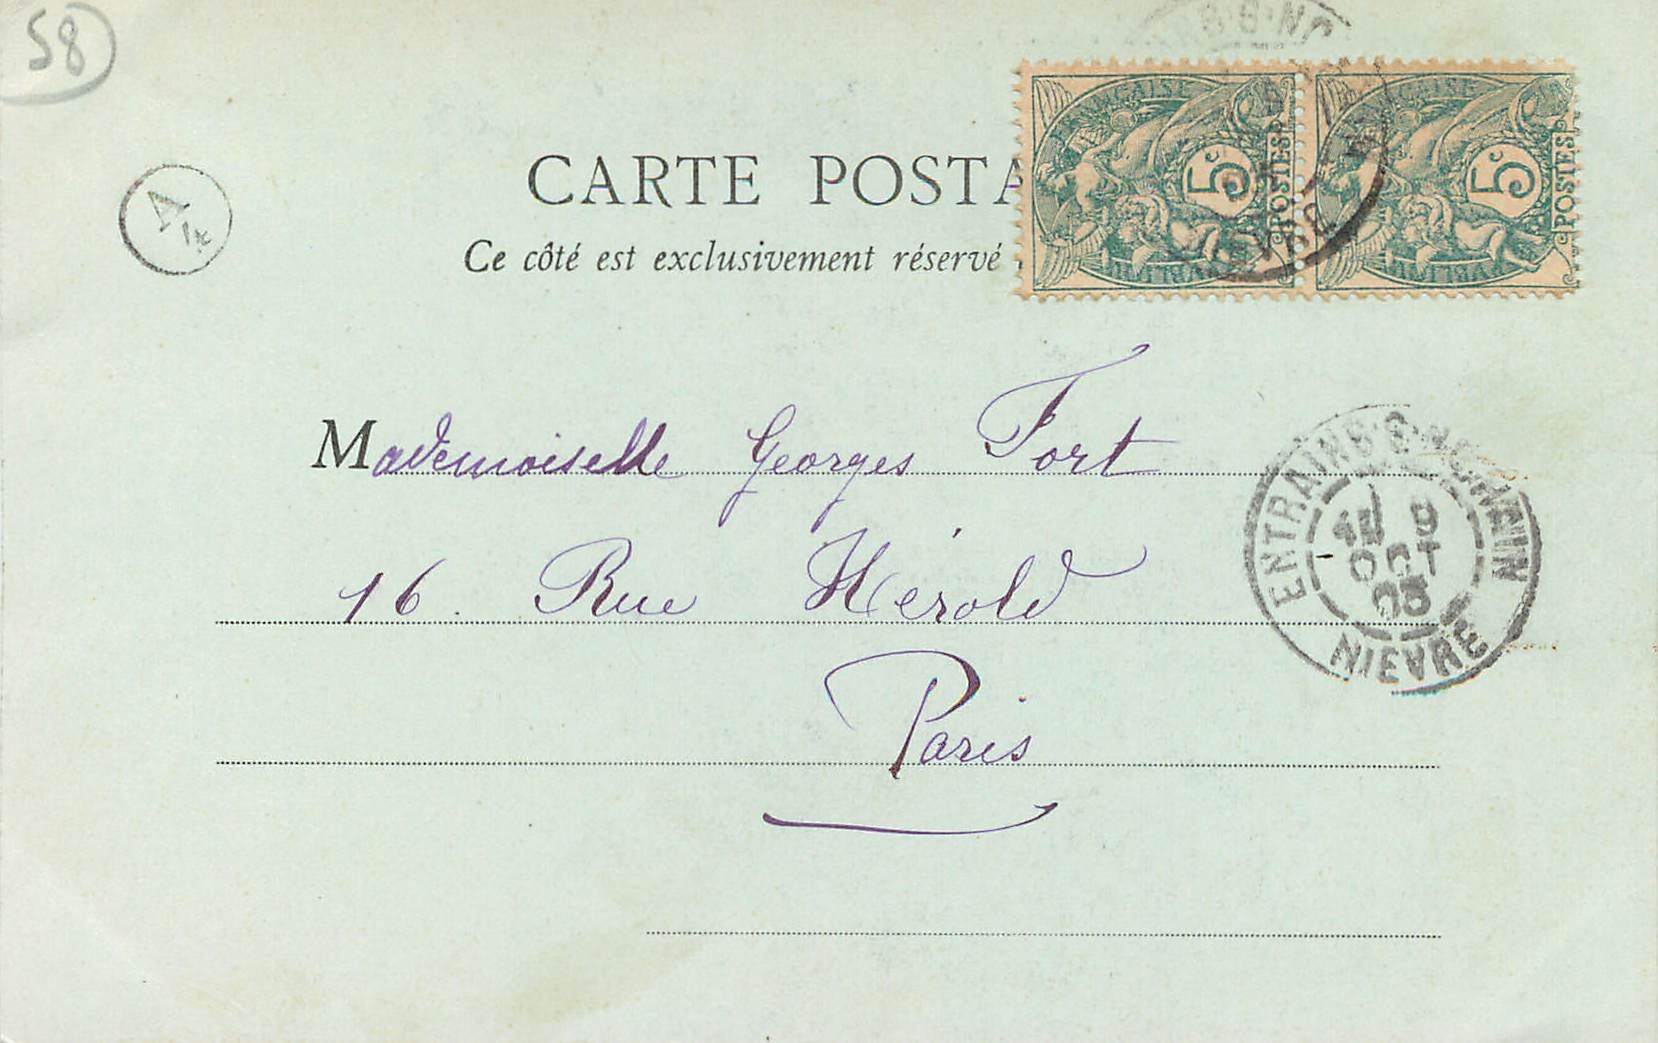 58
4E
CARTE POSTA
Ce côté est exclusivement réservé
FRANÇAISE
5c
POSTES
FRANÇAISE
5c
POSTES
Mademoiselle Georges Fort
16. Rue Hérold
Paris
ENTRAINS-S-NOHAIN
9
OCT
03
NIEVRE